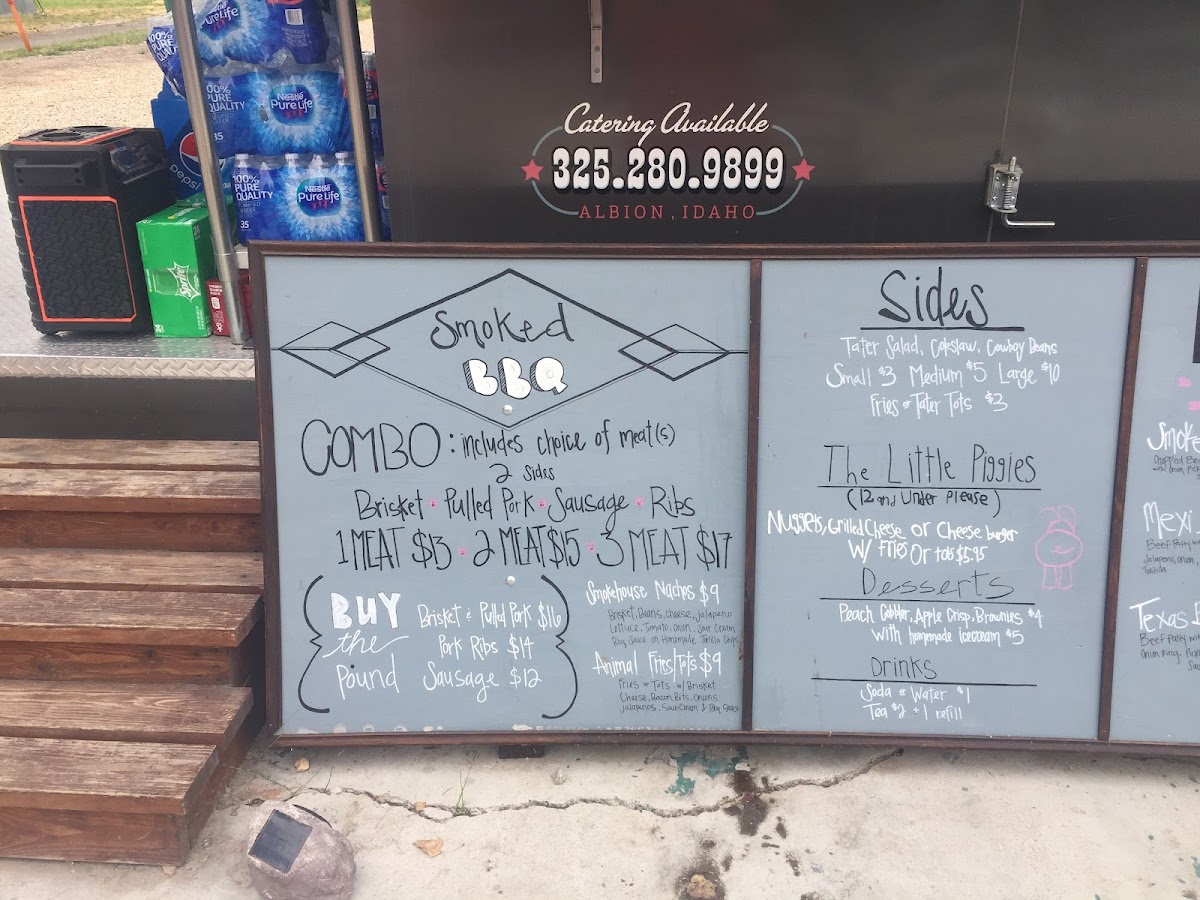 Nestle
PureLife
100%
PURE
QUALITY
Nestle
PureLife
35
pepsi
100%
PURE
QUALITY
Nestle
PureLife
35
Sprite
Catering Available
325.280.9899
ALBION, IDAHO
Smoked
BBQ
COMBO: includes choice of meat(s)
2 Sides
Brisket · Pulled Pork · Sausage · Ribs
1 MEAT $13 · 2 MEAT $15 · 3 MEAT $17
BUY
the
Pound
Brisket & Pulled Pork $16
Pork Ribs $14
Sausage $12
Smokehouse Nachos $9
Brisket, Beans, cheese, Jalapano
Lettuce, Tomato, onion, Sour Cream,
BBQ Sauce on Homemade Tortilla Chips
Animal Fries/Tots $9
Fries or Tots w/ Brisket
Cheese, Bacon Bits, Onions
Jalapenos, Sour Cream & BBQ Sauce
Sides
Tater Salad, Coleslaw, Cowboy Beans
Small $3 Medium $5 Large $10
Fries or Tater Tots $3
The Little Piggies
(12 and Under Please)
Nuggets, Grilled Cheese or Cheese burger
W/ Fries Or tots $5.95
Desserts
Peach Cobbler, Apple Crisp, Brownies $4
with homemade icecream $5
Drinks
Soda or Water $1
Tea $2 + 1 refill
Smoke
Mexi
Beef Patty
Jalapeno, onion,
Tortilla
Texas
Beef Patty
Onion Ring,